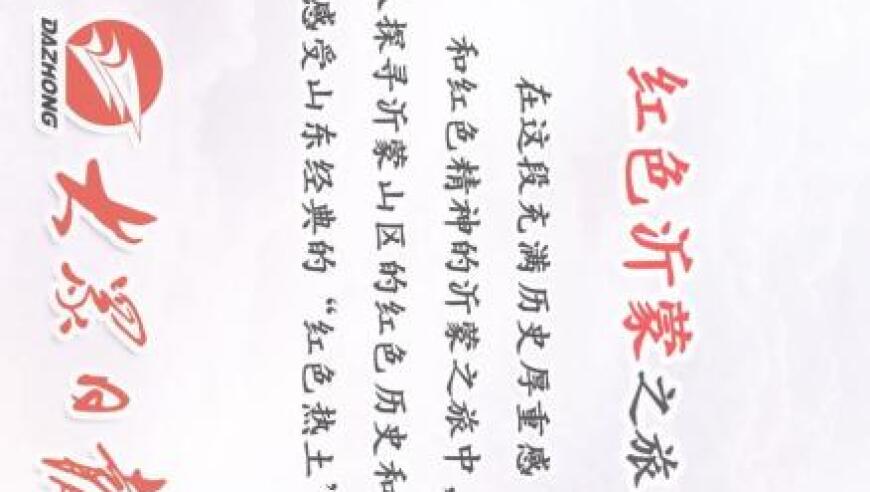 红色沂蒙之旅
在这段充满历史厚重感
和红色精神的沂蒙之旅中，
探寻沂蒙山区的红色历史和
感受山东经典的“红色热土”
DAZHONG
大众日报